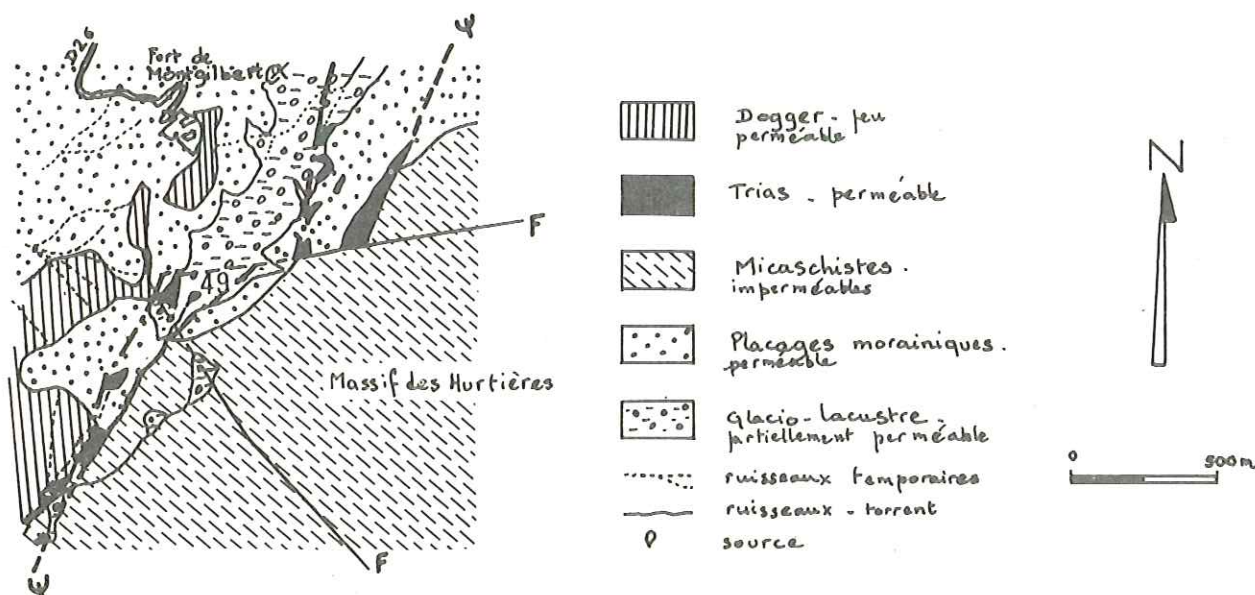 D26
Fort de
Montgilbert
Ψ
F
49
Massif des Hurtières
F
Ψ
Dogger - peu
perméable
Trias - perméable
Micaschistes -
imperméables
Placages morainiques -
perméable
Glacio-lacustre -
partiellement perméable
ruisseaux temporaires
ruisseaux - torrent
source
N
0 500 m